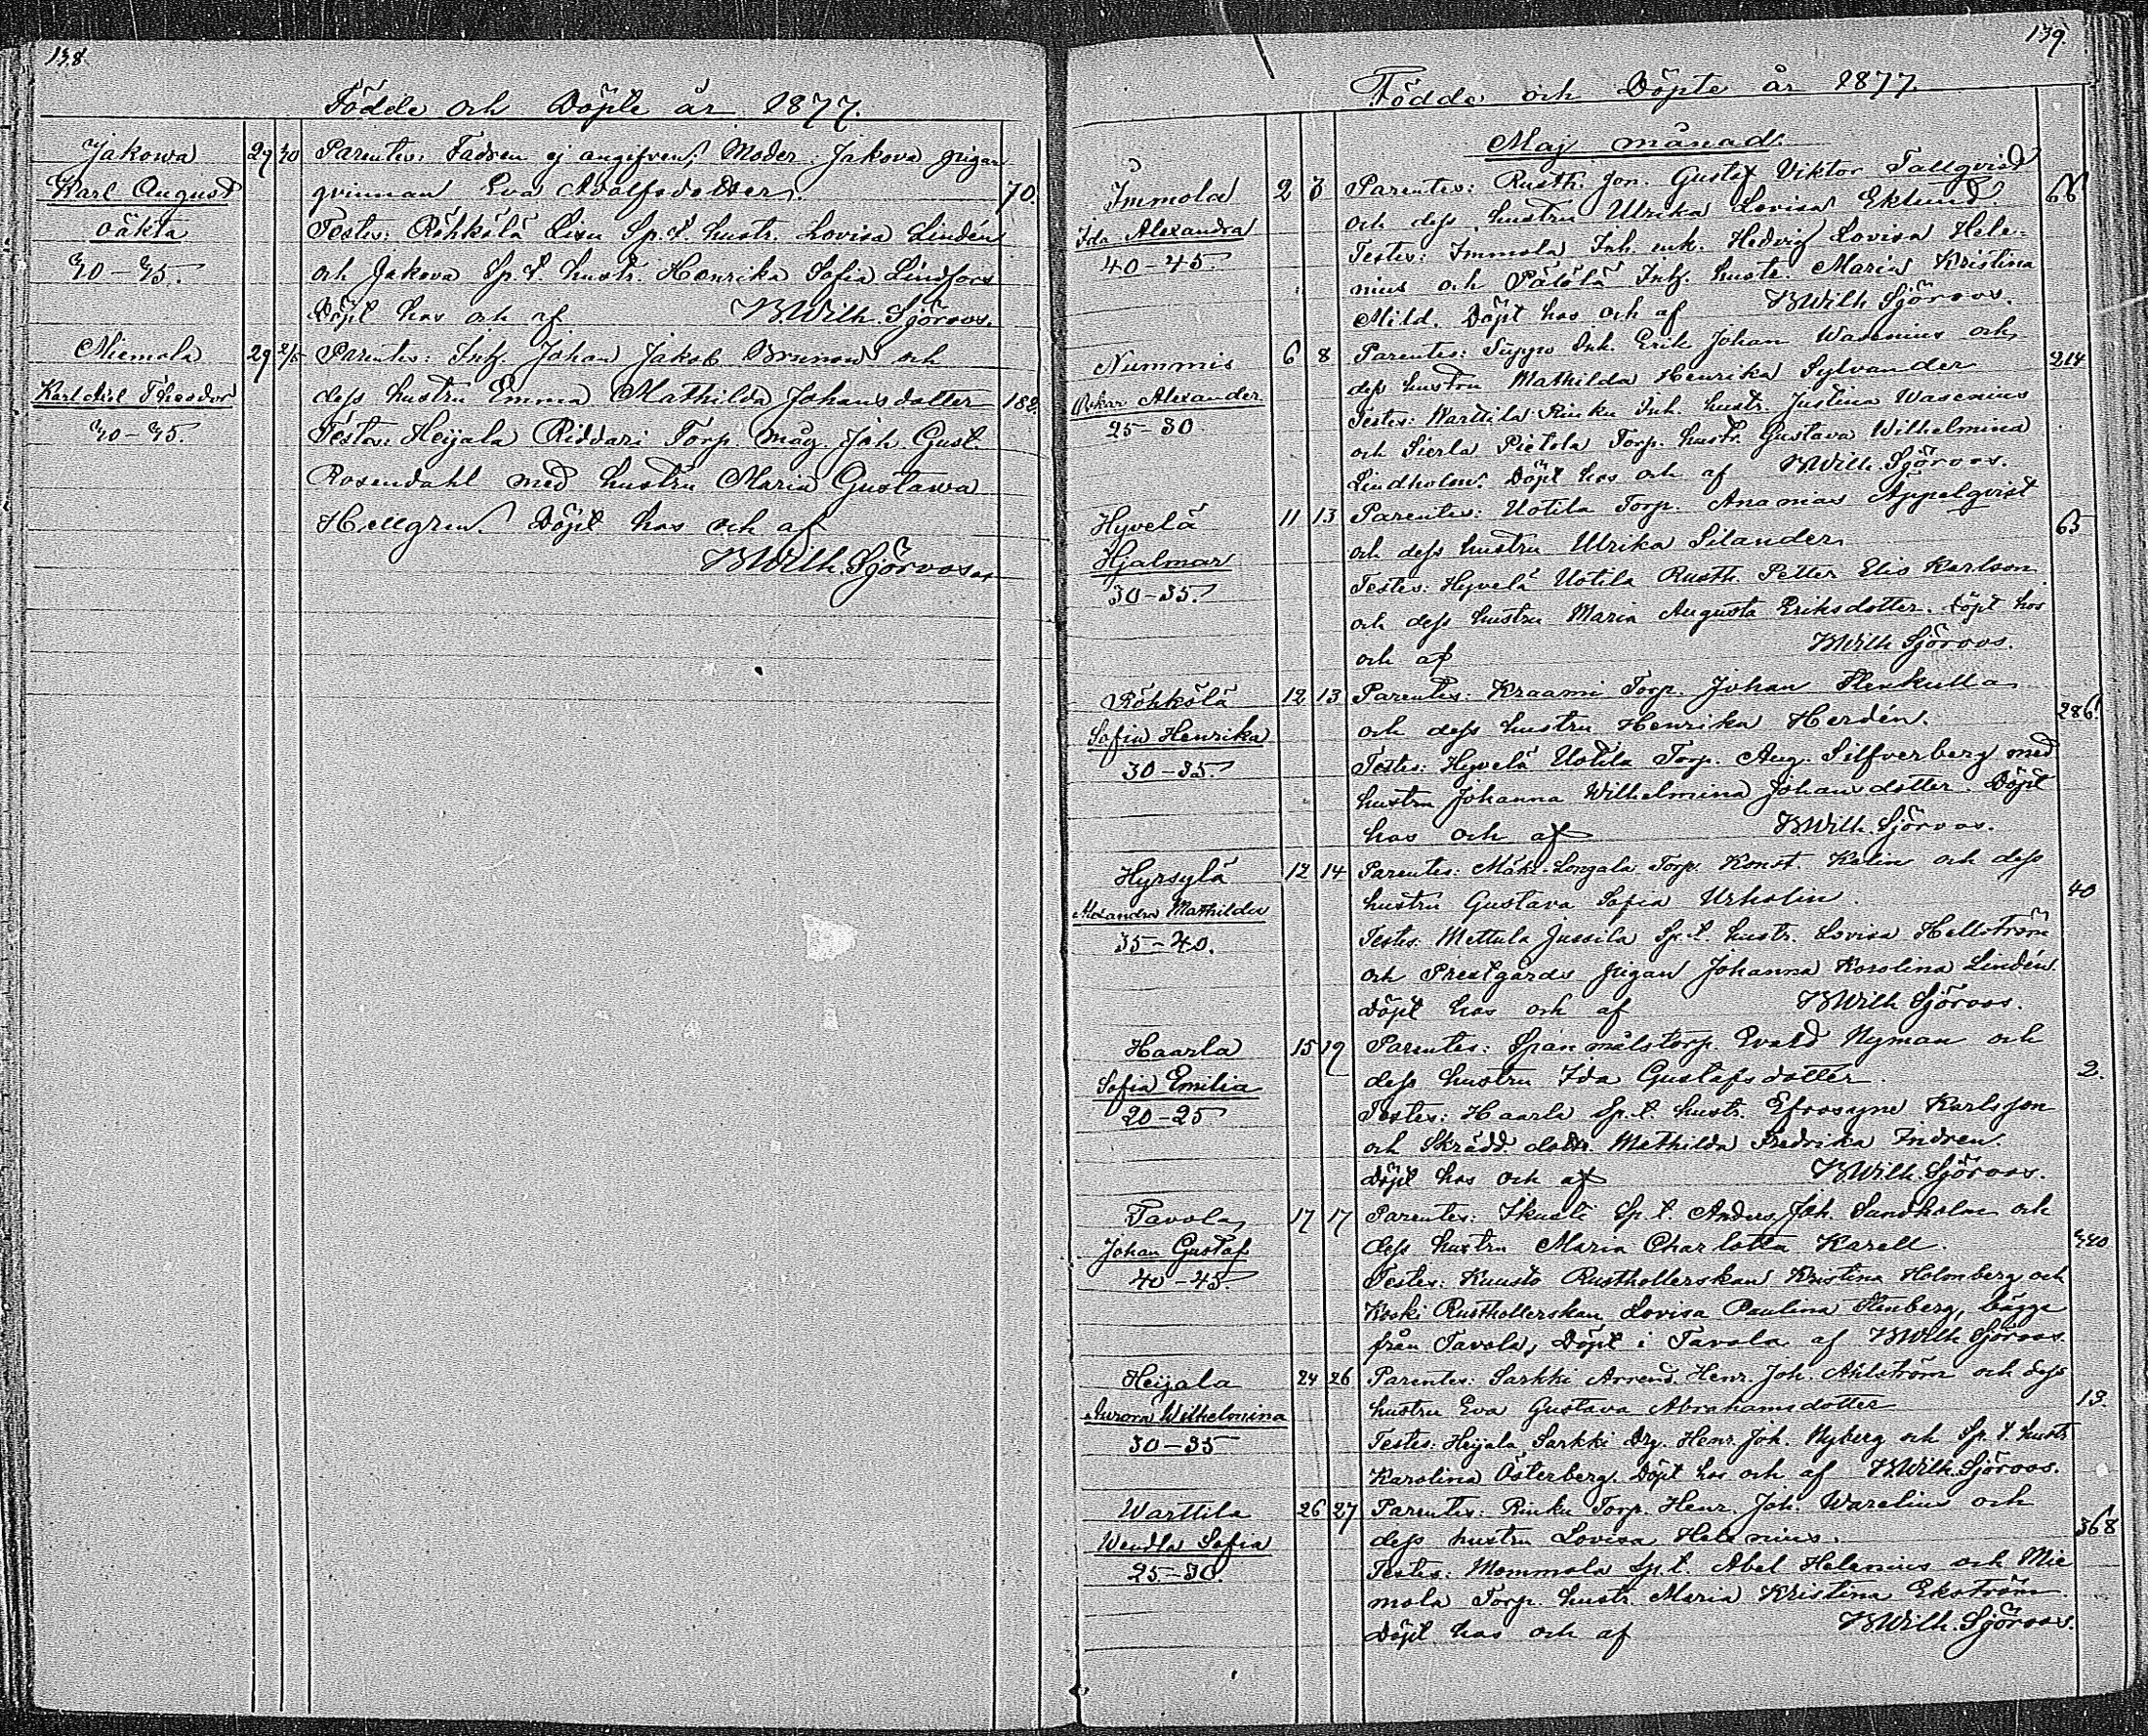 138.
Födde och Döpte år 1877.
Jakowa 29 30 Parentes: Fadren ej angifven, Moder Jakova pigan
Karl August qvinnan Eva Adolfsdotter. 70.
oäkta Testes: Röhkölä Sp.t. hustr. Lovisa Lindén
40-45. och Jakova Sp.t. hustr. Henrika Sofia Lindfors
Döpt hos och af BWilh. Sjöroos.
Niemola 29 2/5 Parentes: Inh. Johan Jakob Brunow och
Karl Axel Theodor dess hustru Emma Mathilda Johansdotter 182.
40-45. Testes: Heijala Riddari Torp. måg Joh. Gust.
Rosendahl med hustru Maria Gustawa
Hellgren. Döpt hos och af
BWilh. Sjöroos.
139.
Födde och Döpte år 1877.
Maj månad.
Immola 2 3 Parentes: Rusth. son Gustaf Viktor Tallqvist
Ida Alexandra och dess hustru Ulrika Lovisa Eklund. 68
40-45. Testes: Immola Inh. enk. Hedvig Lovisa Hele-
nius och Pätölä Inh. hustr. Maria Kristina
Mild. Döpt hos och af BWilh Sjöroos.
Nummis 6 8 Parentes: Inh. Erik Johan Wasenius och
Oskar Alexander dess hustru Mathilda Henrika Sylvander 214
25-30 Testes: Warttila Rinku Inh. hustr. Justina Wasenius
och Sierla Pietola Torp. hustr. Gustava Wilhelmina
Lindholm. Döpt hos och af BWilh. Sjöroos.
Hyvelä 11 13 Parentes: Uotila Torp. Ananias Appelqvist
Hjalmar och dess hustru Ulrika Silander. 65
30-35. Testes: Hyvelä Uotila Rusth. Petter Elis Karlsson
och dess hustru Maria Augusta Eriksdotter. Döpt hos
och af BWilh Sjöroos.
Röhkölä 12 13 Parentes: Kraami Torp. Johan Stenkulla
Sofia Henrika och dess hustru Henrika Herdén. 286.
30-35. Testes: Hyvelä Uotila Torp. Aug. Silfverberg med
hustru Johanna Wilhelmina Johansdotter. Döpt
hos och af BWilh. Sjöroos.
Hyrsylä 12 14 Parentes: Mäki-Longala Torp. Konst. Kalin och dess
Alexandra Mathilda hustru Gustava Sofia Urholin. 40
35-40. Testes. Mettula Jussila Sp.t. hustr. Lovisa Hellström
och Prestgårds pigan Johanna Karolina Lindén.
Döpt hos och af BWilh Sjöroos.
Haarla 15 19 Parentes: Spanmålstorp. Evald Nyman och
Sofia Emilia dess hustru Ida Gustafsdotter. 2.
20-25 Testes: Haarla Sp.t. hustr. Efrosyne Karlsson
och Skrädd. dottr. Mathilda Fredrika Indren.
Döpt hos och af BWilh. Sjöroos.
Tavola 17 17 Parentes: Skusti Sp.t. Anders Joh. Sandholm och
Johan Gustaf dess hustru Maria Charlotta Karell. 330
40-45. Testes: Kuusto Rusthollerskan Kristina Holmberg och
Koski Rusthollerskan Lovisa Paulina Stenberg, bägge
från Tavola, Döpt i Tavola af BWilh Sjöroos.
Heijala 24 26 Parentes: Sarkki Arrend. Henr. Joh. Ahlström och dess
Aurora Wilhelmina hustru Eva Gustava Abrahamsdotter 13.
30-35 Testes: Heijala Sarkki Drg. Henr. Joh. Nyberg och Sp.t. hustr.
Karolina Österberg. Döpt hos och af BWilh. Sjöroos.
Warttila 26 27 Parentes: Rinku Torp. Henr. Joh. Warelius och
Wendla Sofia dess hustru Lovisa Helenius. 368
25-30. Testes: Mommola Sp.t. Abel Helenius och Mie
mola Torp. hustr. Maria Kristina Ekström
Döpt hos och af BWilh. Sjöroos.